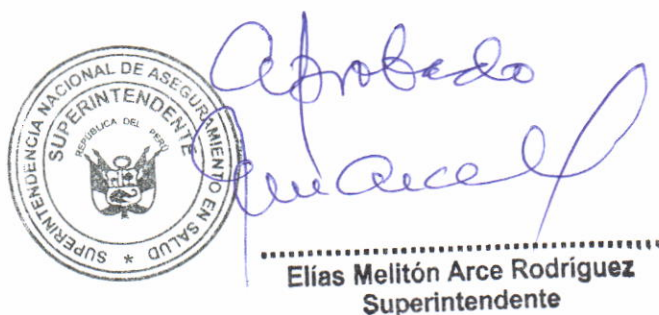 Aprobado
SUPERINTENDENCIA NACIONAL DE ASEGURAMIENTO EN SALUD *
SUPERINTENDENTE
REPÚBLICA DEL PERÚ
Elías Melitón Arce Rodríguez
Superintendente